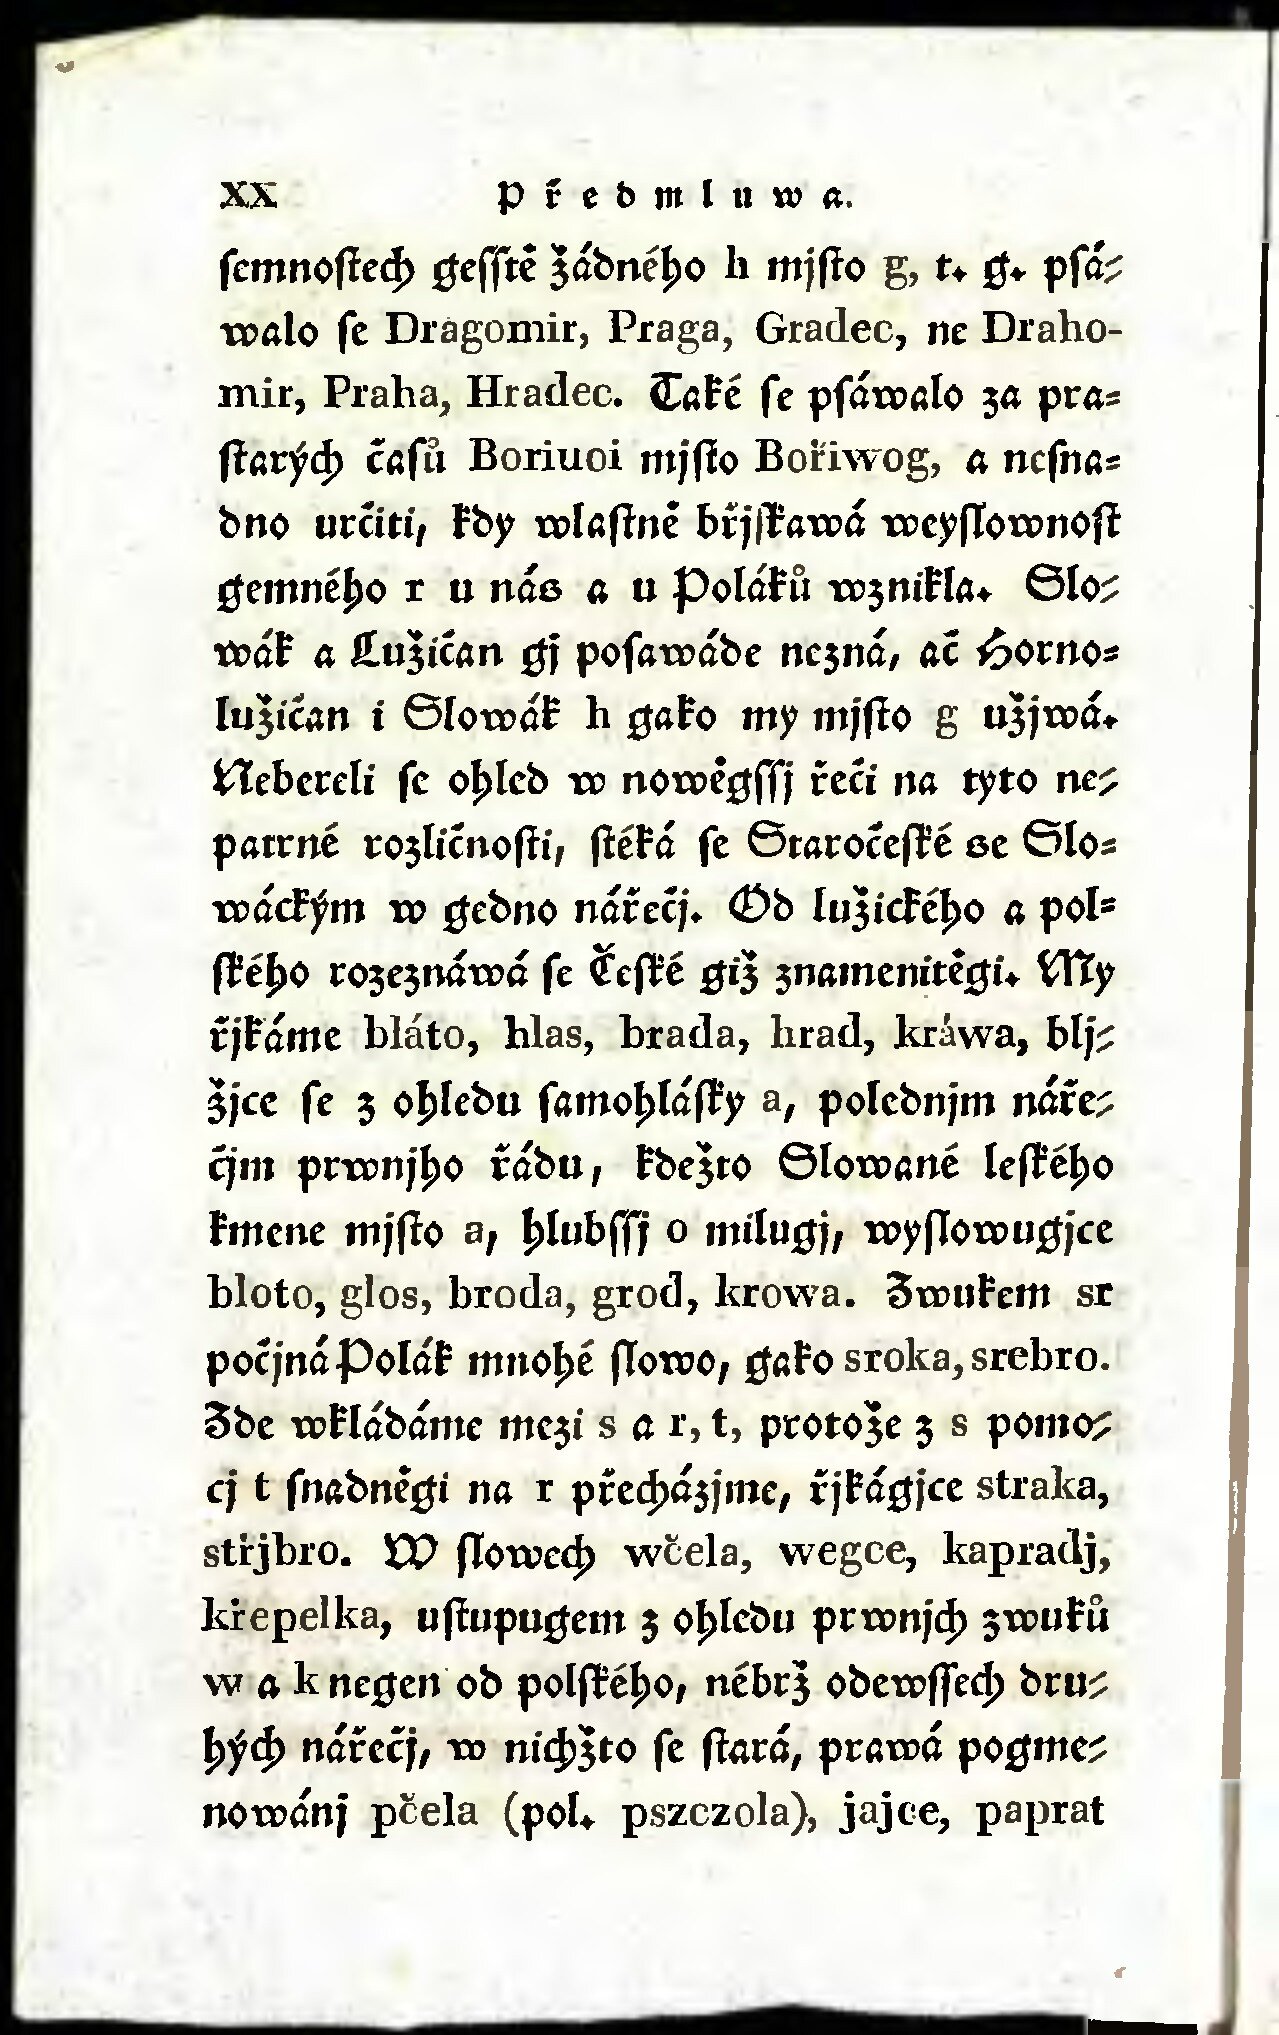 XX Předmluwa.
ſemnoſtech geſſtě žádného h mjſto g, t. g. pſá⸗
walo ſe Dragomir, Praga, Gradec, ne Draho-
mir, Praha, Hradec. Také ſe pſáwalo za pra⸗
ſtarých čaſů Boriuoi mjſto Bořiwog, a neſna⸗
dno určiti, kdy wlaſtně břjſkawá weyſlownoſt
gemného r u nás a u Poláků wznikla. Slo⸗
wák a Lužičan gj poſawáde nezná, ač Horno⸗
lužičan i Slowák h gako my mjſto g užjwá.
Nebereli ſe ohled w nowěgſſj řeči na tyto ne⸗
patrné rozličnoſti, ſtéká ſe Staročeſké se Slo⸗
wáckým w gedno nářečj. Od lužického a pol⸗
ſkého rozeznáwá ſe Čeſké giž znamenitěgi. My
řjkáme bláto, hlas, brada, hrad, kráwa, blj⸗
žjce ſe z ohledu ſamohláſky a, polednjm náře⸗
čjm prwnjho řádu, kdežto Slowané leſkého
kmene mjſto a, hlubſſj o milugj, wyſlowugjce
bloto, glos, broda, grod, krowa. Zwukem sr
počjná Polák mnohé ſlowo, gako sroka, srebro.
Zde wkládáme mezi s a r, t, protože z s pomo⸗
cj t ſnadněgi na r přecházjme, řjkágjce straka,
střjbro. W ſlowech wčela, wegce, kapradj,
křepelka, uſtupugem z ohledu prwnjch zwuků
w a k negen od polſkého, nébrž odewſſech dru⸗
hých nářečj, w nichžto ſe ſtará, prawá pogme⸗
nowánj pčela (pol. pszczola), jajce, paprat